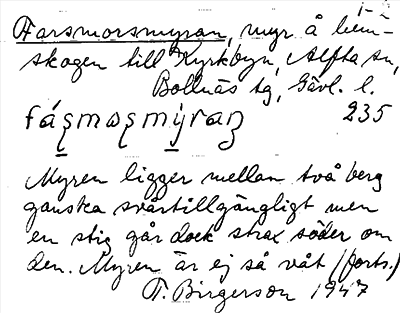 1-2
Farsmorsmyran, myr å hem-
skogen till Kyrkbyn, Alfta sn,
Bollnäs tg, Gävl. l.
fáʂmωʂmýran 235
Myren ligger mellan två berg
ganska svårtillgängligt men
en stig går dock strax söder om
den. Myren är ej så våt (forts.)
T. Birgerson 1947